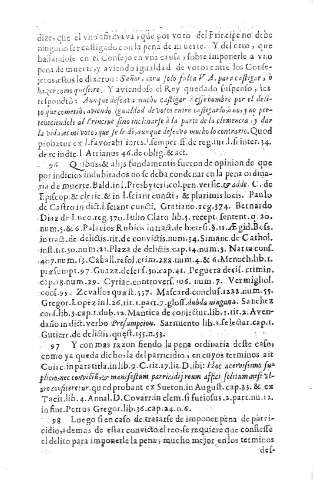 dize, que el vno afirmava, que por voto del Principe no debe
ninguno ser castigado con la pena de muerte. Y del otro, que
hallandose en el Consejo en vna causa, sobre imponerle a vno
pena de muerte, y aviendo igualdad de votos entre los Conse-
jeros, estos le dixeron: Señor, esta solo falta V. A. para castigar, ò
hazer como quisiere. Y aviendose el Rey suspenso, les
respondiò: Aunque deseava mucho castigar a esse hombre por el deli-
to que cometió, aviendo igualdad de votos entre castigarlo, ò no, no per-
teneciendole al Principe sino inclinarse à la parte de la clemencia, y dar
la vida, assi votos que se le dè, aunque deseava mucho lo contrario. Quod
probatur ex l. favorabiliores. l. semper ff. de reg. iur. l. si inter. 34.
de re iudic. l. Arrianus 46. de oblig. & act.
96 Quibus, & alijs fundamentis fueron de opinion de que
por indicios indubitados no se deba condenar en la pena ordina-
ria de muerte. Bald. in l. Presbyteri, col. pen. versic. & adde. C. de
Episcop. & cleric. & in l. sciant cuncti, & plurimis locis. Paulo
de Castro in dict. l. sciant cuncti. Cratiano. reg. 374. Bernardo
Diaz de Luco reg. 370. Iulio Claro lib. 5. recept. sentent. q. 20.
num. 5. & 6. Palacios Rubios in tract. de hæres. §. 11. Ægid. Boss.
in tract. de delictis, tit. de convictis. num. 34. Simanc. de Cathol.
inst. tit. 50. num. 21. Plaza de delictis. cap. 14. num. 3. Natta cons.
407. num. 15. Caball. resol. crim. 282. num. 4. & 6. Menoch. lib. 1.
præsumpt. 97. Guazz. defens. 30. cap. 41. Peguera decis. crimin.
cap. 18. num. 29. Cyriac. controvers. 106. num. 7. Vermigliol.
cons. 95. Zevallos quæst. 537. Mascard. conclus. 1222. num. 55.
Gregor. Lopez in l. 26. tit. 1. part. 7. gloss. dubda ninguna. Sanchez
cons. lib. 3. cap. 1. dub. 12. Mantica de coniectur. lib. 1. tit. 2. Aven-
daño in dict. verbo Presumpcion. Sarmiento lib. 1. selectar. cap. 1.
Gutierr. de delictis, quæst. 155. n. 53.
97 Y con mas razon siendo la pena ordinaria deste caso,
como ya queda dicho la del parricidio, en cuyos terminos ait
Cuiac. in paratitla, in lib. 9. C. tit. 17. lit. D. ibi: Hoc acerbissimo su-
plicio, nec convictis, & manifestum parricidij reum affici solitum, nisi vl-
tro confiteretur, quod probant ex Sueton. in August. cap. 33. & ex
Tacit. lib. 4. Annal. D. Covarr. in clem. si furiosus, 2. part. nu. 12.
in fine. Petrus Gregor. lib. 36. cap. 24. n. 6.
98 Luego si en caso de tratarse de imponer pena de parri-
cidio, ademas de estar convicto el reo, se requiere que confiesse
el delito para imponerle la pena; mucho mejor en los terminos
des-